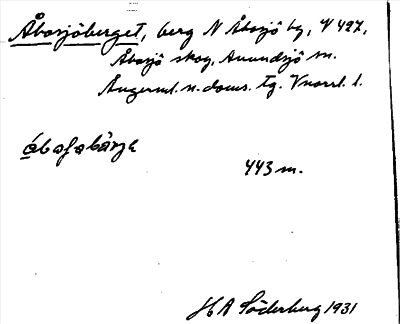 Åbosjöberget, berg N Åbosjö by, V 427,
Åbosjö skog, Anundsjö sn.
Ångerml. n. doms. tg. Vnorrl. l.
åbosobärje
443 m.
H A Söderberg 1931